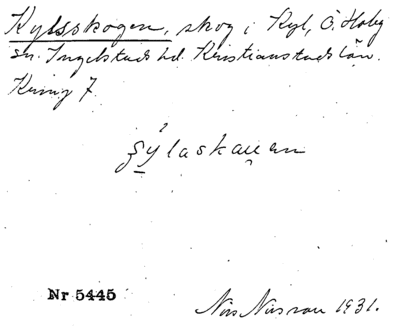 Kylsskogen, skog i Kyl, Ö. Hoby
sn. Ingelstads hd. Kristianstads län.
Kring 7
ʃýlaskau̯en
Nr 5445
Nils Nilsson 1931.